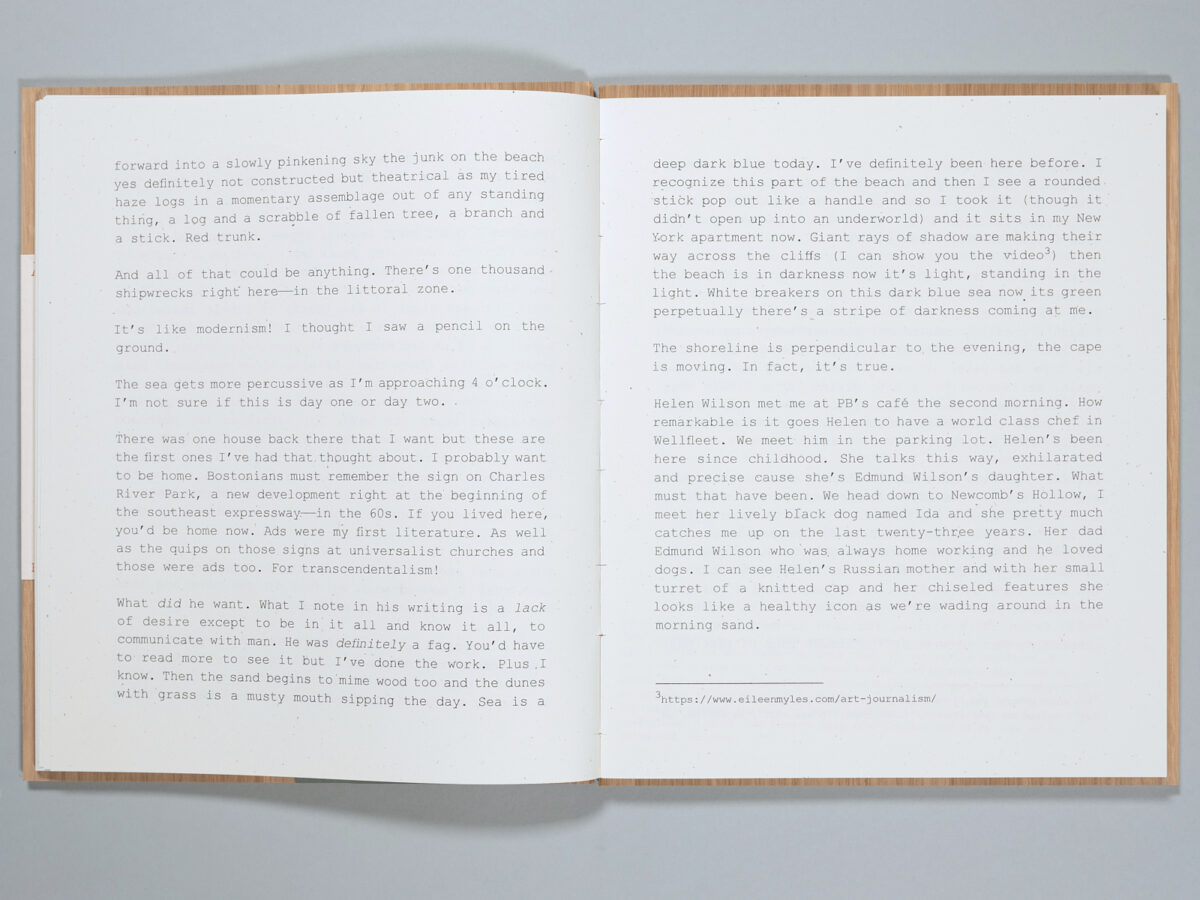 forward into a slowly pinkening sky the junk on the beach
yes definitely not constructed but theatrical as my tired
haze logs in a momentary assemblage out of any standing
thing, a log and a scrabble of fallen tree, a branch and
a stick. Red trunk.
And all of that could be anything. There's one thousand
shipwrecks right here—in the littoral zone.
It's like modernism! I thought I saw a pencil on the
ground.
The sea gets more percussive as I'm approaching 4 o'clock.
I'm not sure if this is day one or day two.
There was one house back there that I want but these are
the first ones I've had that thought about. I probably want
to be home. Bostonians must remember the sign on Charles
River Park, a new development right at the beginning of
the southeast expressway—in the 60s. If you lived here,
you'd be home now. Ads were my first literature. As well
as the quips on those signs at universalist churches and
those were ads too. For transcendentalism!
What did he want. What I note in his writing is a lack
of desire except to be in it all and know it all, to
communicate with man. He was definitely a fag. You'd have
to read more to see it but I've done the work. Plus I
know. Then the sand begins to mime wood too and the dunes
with grass is a musty mouth sipping the day. Sea is a
deep dark blue today. I've definitely been here before. I
recognize this part of the beach and then I see a rounded
stick pop out like a handle and so I took it (though it
didn't open up into an underworld) and it sits in my New
York apartment now. Giant rays of shadow are making their
way across the cliffs (I can show you the video³) then
the beach is in darkness now it's light, standing in the
light. White breakers on this dark blue sea now its green
perpetually there's a stripe of darkness coming at me.
The shoreline is perpendicular to the evening, the cape
is moving. In fact, it's true.
Helen Wilson met me at PB's café the second morning. How
remarkable is it goes Helen to have a world class chef in
Wellfleet. We meet him in the parking lot. Helen's been
here since childhood. She talks this way, exhilarated
and precise cause she's Edmund Wilson's daughter. What
must that have been. We head down to Newcomb's Hollow, I
meet her lively black dog named Ida and she pretty much
catches me up on the last twenty-three years. Her dad
Edmund Wilson who was always home working and he loved
dogs. I can see Helen's Russian mother and with her small
turret of a knitted cap and her chiseled features she
looks like a healthy icon as we're wading around in the
morning sand.
³https://www.eileenmyles.com/art-journalism/